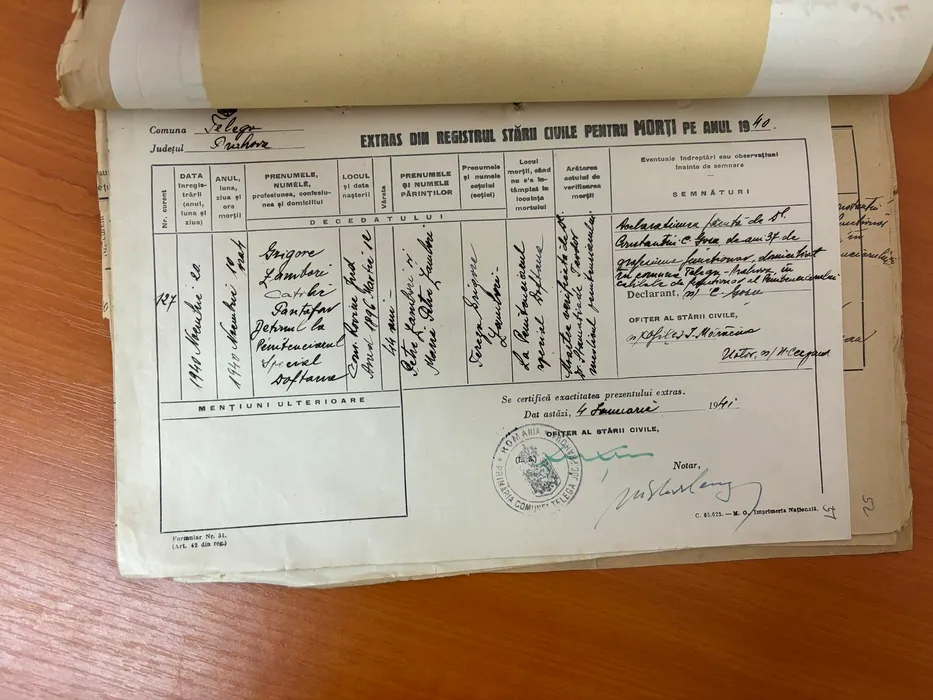 Comuna Telega
Județul Prahova
EXTRAS DIN REGISTRUL STĂRII CIVILE PENTRU MORȚI PE ANUL 1940.
Nr. curent
DATA
înregis-
trării
(anul,
luna și
ziua)
ANUL,
luna,
ziua și
ora
morții
PRENUMELE,
NUMELE,
profesiunea, confesiu-
nea și domiciliul
LOCUL
și data
nașterii
Vârsta
PRENUMELE
ȘI NUMELE
PĂRINȚILOR
Prenumele
și numele
soțului
(soției)
Locul
morții, când
nu s'a în-
tâmplat în
locuința
mortului
Arătarea
actului de
verificarea
morții
Eventuale îndreptări sau observațiuni
înainte de semnare
SEMNĂTURI
DECEDATULUI
127
1940 Noembrie 22
1940 Noembrie 10
ora 4
Grigore
Zambori
Pantofar
Deținut la
Penitenciarul
Special
Doftana
Com.
Arad 1896 Martie 12
44 ani
Petre Zambori și
Maria Petre Zambori
Tereza Grigore
Zambori
La Penitenciarul
special Doftana
Moartea verificată de Dl.
Dr. Teodor
medicul penitenciarului
Declarațiunea făcută de Dl.
Constantin C Gosu de ani 37 de
profesiune funcționar, domiciliat
în comuna Telega-Prahova, în
calitate de funcționar al Penitenciarului
Declarant, ss/ C. Gosu
OFIȚER AL STĂRII CIVILE,
Notar, ss/
MENȚIUNI ULTERIOARE
Se certifică exactitatea prezentului extras.
Dat astăzi, 4 Ianuarie 1941
OFIȚER AL STĂRII CIVILE,
(L. S.)
ROMANIA
PRIMĂRIA COMUNEI TELEGA
Notar,
C. 65.625. — M. O., Imprimeria Națională.
51
52
Formular Nr. 31.
(Art. 42 din reg.)